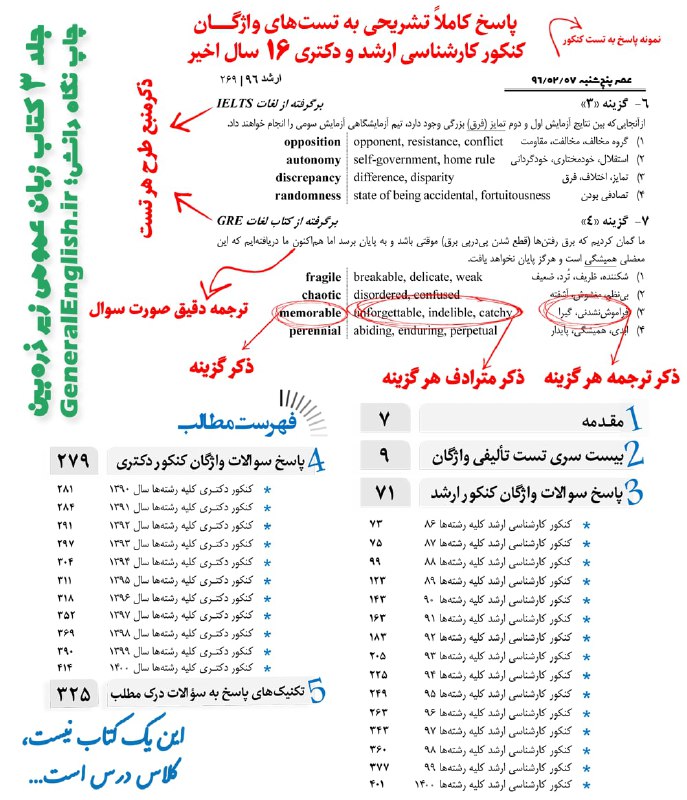 پاسخ کاملاً تشریحی به تست‌های واژگـان
کنکور کارشناسی ارشد و دکتری ۱۶ سال اخیر
نمونه پاسخ به تست کنکور
جلد ۳ کتاب زبان عمومی زیر ذره‌بین
چاپ نگاه دانشی؛ GeneralEnglish.ir
عصر پنج‌شنبه ۹۶/۰۲/۰۷
ارشد ۹۶| ۲۶۹
۶- گزینه «۳»
برگرفته از لغات IELTS
ازآنجایی‌که بین نتایج آزمایش اول و دوم تمایز (فرق) بزرگی وجود دارد، تیم آزمایشگاهی آزمایش سومی را انجام خواهند داد.
opposition opponent, resistance, conflict ۱) گروه مخالف، مخالفت، مقاومت
autonomy self-government, home rule ۲) استقلال، خودمختاری، خودگردانی
discrepancy difference, disparity ۳) تمایز، اختلاف، فرق
randomness state of being accidental, fortuitousness ۴) تصادفی بودن
ذکر منبع طرح هر تست
۷- گزینه «۴»
برگرفته از کتاب لغات GRE
ما گمان کردیم که برق رفتن‌ها (قطع شدن پی‌درپی برق) موقتی باشد و به پایان برسد اما هم‌اکنون ما دریافته‌ایم که این
معضلی همیشگی است و هرگز پایان نخواهد یافت.
fragile breakable, delicate, weak ۱) شکننده، ظریف، تُرد، ضعیف
chaotic disordered, confused ۲) بی‌نظم، مغشوش، آشفته
memorable unforgettable, indelible, catchy ۳) فراموش‌نشدنی، گیرا
perennial abiding, enduring, perpetual ۴) ابدی، همیشگی، پایدار
ترجمه دقیق صورت سوال
ذکر گزینه
ذکر مترادف هر گزینه
ذکر ترجمه هر گزینه
فهرست مطالب
1 مقدمه ۷
2 بیست سری تست تألیفی واژگان ۹
3 پاسخ سوالات واژگان کنکور ارشد ۷۱
* کنکور کارشناسی ارشد کلیه رشته‌ها ۸۶ ۷۳
* کنکور کارشناسی ارشد کلیه رشته‌ها ۸۷ ۷۵
* کنکور کارشناسی ارشد کلیه رشته‌ها ۸۸ ۹۹
* کنکور کارشناسی ارشد کلیه رشته‌ها ۸۹ ۱۲۳
* کنکور کارشناسی ارشد کلیه رشته‌ها ۹۰ ۱۴۳
* کنکور کارشناسی ارشد کلیه رشته‌ها ۹۱ ۱۶۳
* کنکور کارشناسی ارشد کلیه رشته‌ها ۹۲ ۱۸۳
* کنکور کارشناسی ارشد کلیه رشته‌ها ۹۳ ۲۰۵
* کنکور کارشناسی ارشد کلیه رشته‌ها ۹۴ ۲۲۵
* کنکور کارشناسی ارشد کلیه رشته‌ها ۹۵ ۲۴۹
* کنکور کارشناسی ارشد کلیه رشته‌ها ۹۶ ۲۶۳
* کنکور کارشناسی ارشد کلیه رشته‌ها ۹۷ ۳۴۳
* کنکور کارشناسی ارشد کلیه رشته‌ها ۹۸ ۳۶۰
* کنکور کارشناسی ارشد کلیه رشته‌ها ۹۹ ۳۷۷
* کنکور کارشناسی ارشد کلیه رشته‌ها ۱۴۰۰ ۴۰۱
4 پاسخ سوالات واژگان کنکور دکتری ۲۷۹
* کنکور دکتـری کلیه رشته‌ها سال ۱۳۹۰ ۲۸۱
* کنکور دکتـری کلیه رشته‌ها سال ۱۳۹۱ ۲۸۴
* کنکور دکتـری کلیه رشته‌ها سال ۱۳۹۲ ۲۹۱
* کنکور دکتـری کلیه رشته‌ها سال ۱۳۹۳ ۲۹۷
* کنکور دکتـری کلیه رشته‌ها سال ۱۳۹۴ ۳۰۴
* کنکور دکتـری کلیه رشته‌ها سال ۱۳۹۵ ۳۱۱
* کنکور دکتـری کلیه رشته‌ها سال ۱۳۹۶ ۳۱۸
* کنکور دکتـری کلیه رشته‌ها سال ۱۳۹۷ ۳۵۲
* کنکور دکتـری کلیه رشته‌ها سال ۱۳۹۸ ۳۶۹
* کنکور دکتـری کلیه رشته‌ها سال ۱۳۹۹ ۳۹۰
* کنکور دکتـری کلیه رشته‌ها سال ۱۴۰۰ ۴۱۴
5 تکنیک‌های پاسخ به سؤالات درک مطلب ۳۲۵
این یک کتاب نیست،
کلاس درس است...